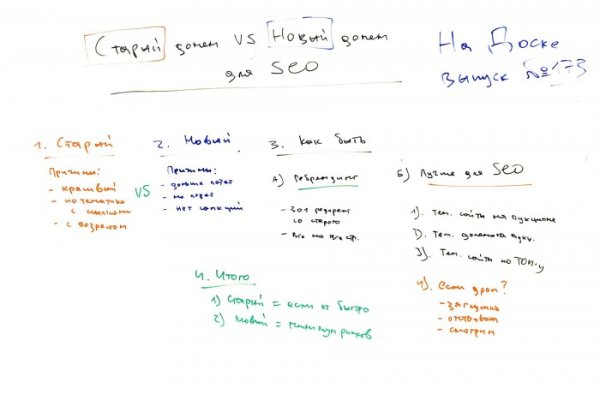 Старый домен VS Новый домен
для SEO
На Доске
выпуск №173
1. Старый
Причины:
- красивый
- по тематике
с ссылками
- с возрастом
VS
2. Новый
Причины:
- дольше
- нет санкций
3. Как быть
А) Ребрендинг
- 301 редирект
со старого
- Все на все стр.
Б) Лучше для SEO
1). Тем. сайты на аукционе
2). Тем. домена аукц.
3). Тем. сайты по ТОП-у
4). если дроп?
- заглушка
- отстаивать
- смотрим
4. Итого
1) Старый = если ок быстро
2) Новый = минимум рисков